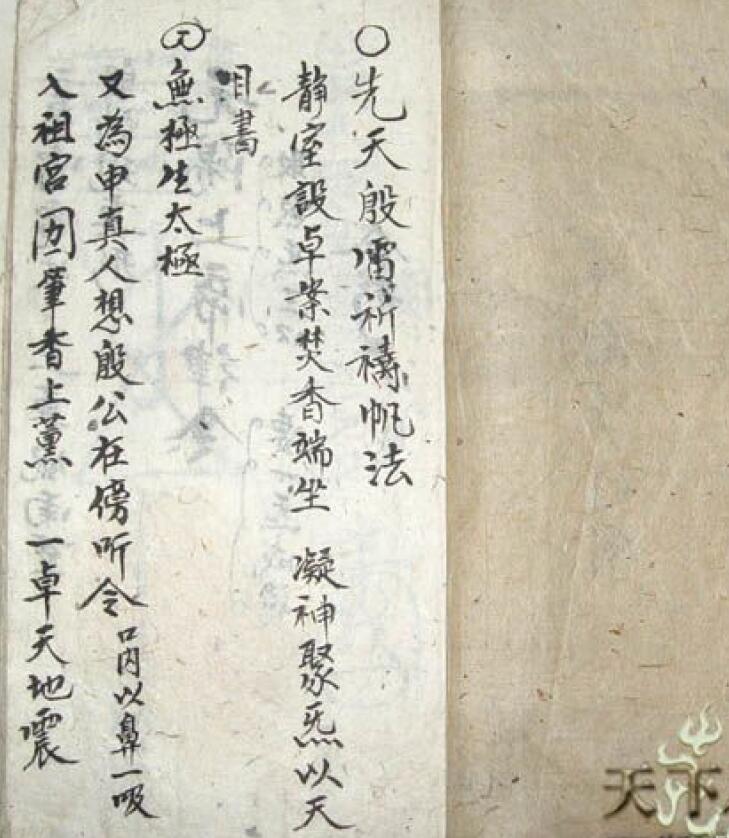 ○先天殷雷祈禱帆法
靜室設卓案焚香端坐 凝神聚炁以天
目書
無極生太極
又為申真人想殷公在傍听令 口内以鼻一吸
入祖宮 筆香上薰一卓天地震
天下